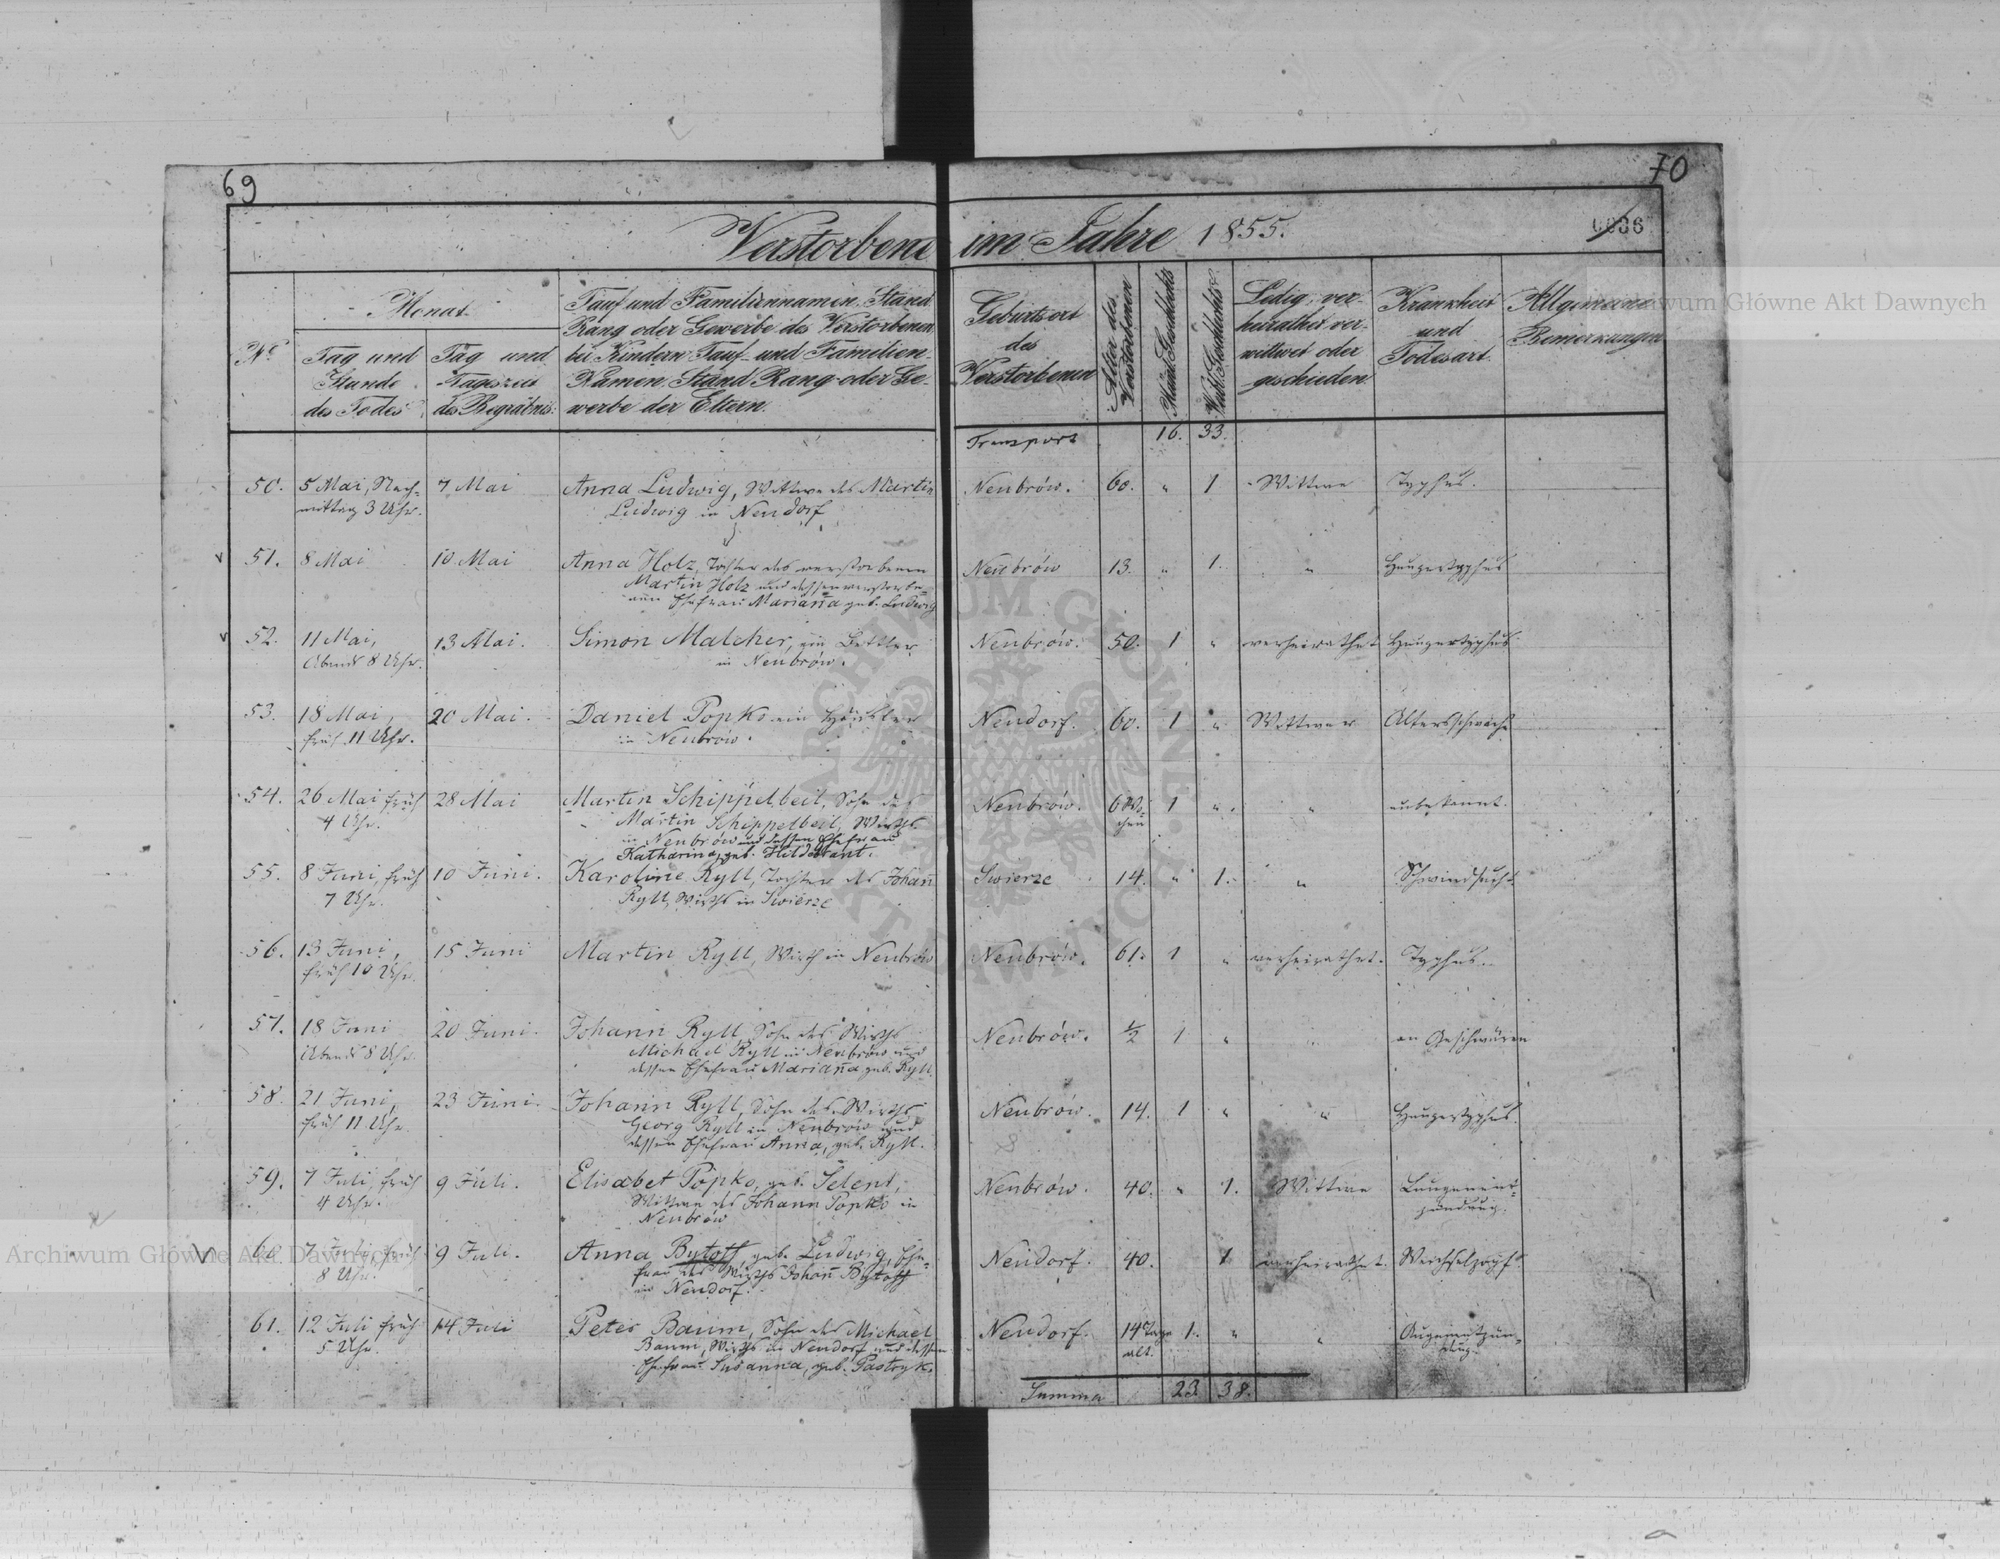 69
70
Verstorbene im Jahre 1855.
0036
No
Monat
Tag und
Stunde
des Todes
Tag und
Tageszeit
des Begräbnis:
Tauf und Familiennamen, Stand
Rang oder Gewerbe des Verstorbenen
bei Kindern Tauf- und Familien-
Namen, Stand Rang oder Ge-
werbe der Eltern.
Geburtsort
des
Verstorbenen
Alter des
Verstorbenen
Männl. Geschlechts
Weibl. Geschlechts
Ledig, ver-
heirathet ver-
wittwet oder
geschieden
Krankheit
und
Todesart.
Allgemeine
Bemerkungen
Transport 16. 33.
50. 5 Mai, Nach- 7 Mai Anna Ludwig, Wittwe des Martin Neubrów. 60. " 1 Wittwe Typhus.
mittag 3 Uhr. Ludwig in Neudorf
51. 8 Mai 10 Mai Anna Holz, Tochter des verstorbenen Neubrów 13. " 1. " Hungertyphus
Martin Holz und dessen verstorbe-
nen Ehefrau Marianna geb. Ludwig
52. 11 Mai, 13 Mai. Simon Malcher, ein Bettler Neubrów. 50. 1 " verheirathet Hungertyphus
Abends 8 Uhr. in Neubrów.
53. 18 Mai, 20 Mai. Daniel Popko ein Häusler Neudorf. 60. 1 " Wittwer Altersschwäche
früh 11 Uhr. in Neubrów.
54. 26 Mai früh 28 Mai Martin Schippelbeil, Sohn des Neubrów. 6 Wo- 1 " " unbekannt.
4 Uhr. Martin Schippelbeil, Wirths chen
in Neubrów und dessen Ehefrau
Katharina, geb. Hildebrant.
55. 8 Juni, früh 10 Juni. Karoline Ryll, Tochter des Johann Swierze 14. " 1. " Schwindsucht
7 Uhr. Ryll, Wirths in Swierze
56. 13 Juni, 15 Juni Martin Ryll, Wirth in Neubrów Neubrów. 61. 1 " verheirathet. Typhus.
früh 10 Uhr.
57. 18 Juni 20 Juni. Johann Ryll, Sohn des Wirths Neubrów. 1/2 1 " " an Geschwüren
Abends 8 Uhr. Michael Ryll in Neubrów und
dessen Ehefrau Marianna geb. Ryll.
58. 21 Juni, 23 Juni. Johann Ryll, Sohn des Wirths Neubrów. 14. 1 " " Hungertyphus.
früh 11 Uhr. Georg Ryll in Neubrów und
dessen Ehefrau Anna, geb. Ryll.
59. 7 Juli, früh 9 Juli. Elisabet Popko, geb. Selent, Neubrów. 40. " 1. Wittwe Lungenent-
4 Uhr. Wittwe des Johann Popko in zündung.
Neubrów
60. 7 Juli, früh 9 Juli. Anna Bytoff geb. Ludwig, Ehe- Neudorf. 40. 1 verheirathet. Weichselzopf.
8 Uhr. frau des Wirths Johann Bytoff
in Neudorf.
61. 12 Juli früh 14 Juli Peter Baum, Sohn des Michael Neudorf. 14 Tage 1. " " Augenentzün-
5 Uhr. Baum, Wirths in Neudorf und dessen alt. dung.
Ehefrau Susanna, geb. Pastryk.
Summa 23. 38.
Archiwum Główne Akt Dawnych
Archiwum Główne Akt Dawnych
ARCHIWUM GŁÓWNE AKT DAWNYCH